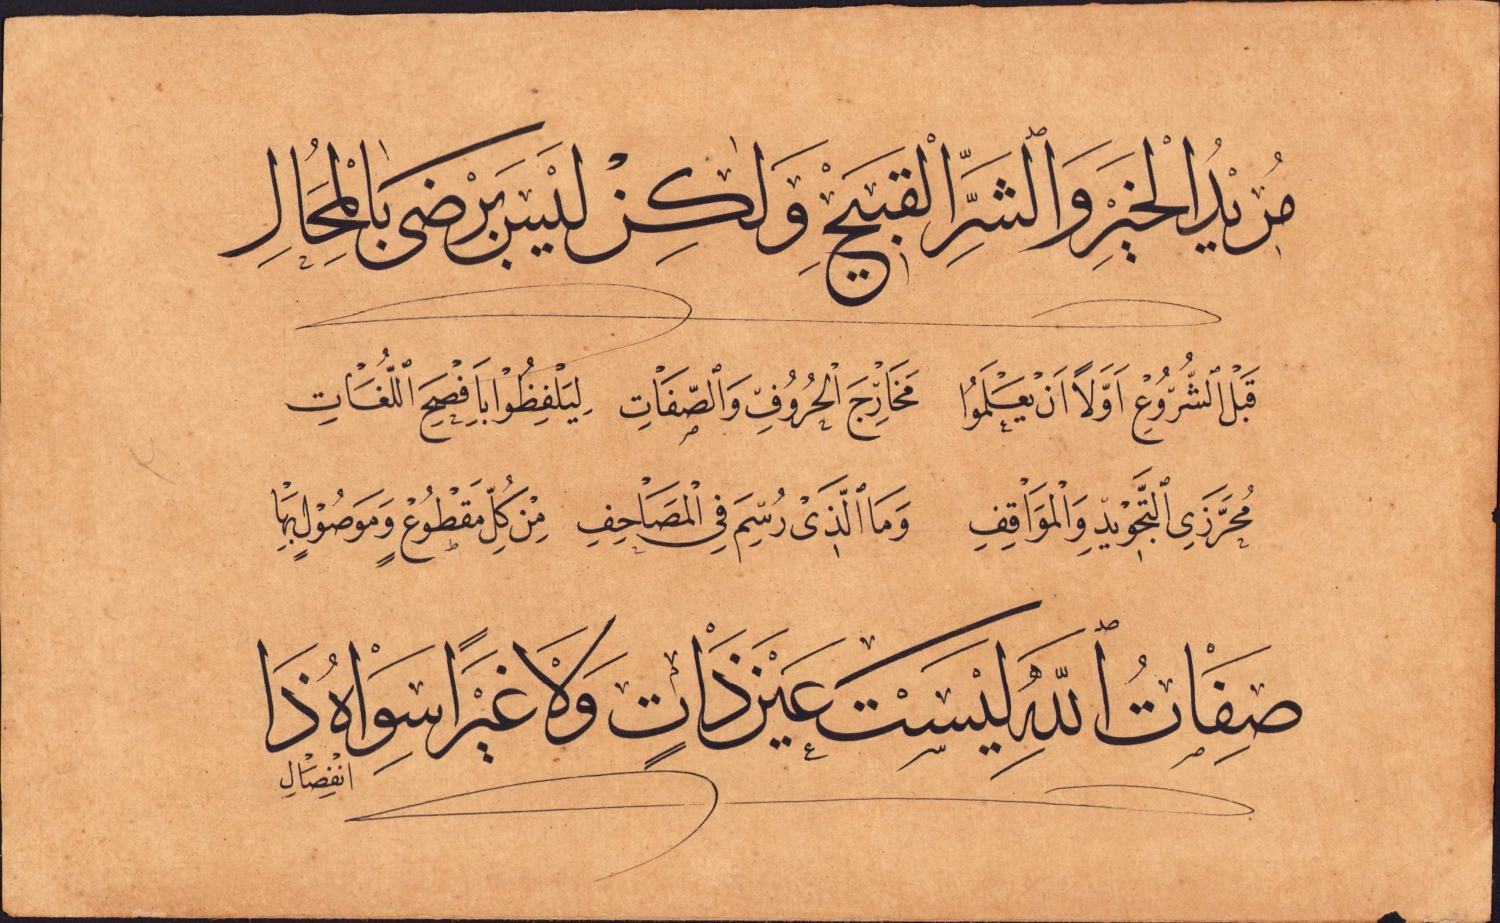 مُرِيْدُ الْخَيْرِ وَالشَّرِّ الْقَبِيْحِ وَلٰكِنْ لَيْسَ يَرْضٰى بِالْمُحَالِ
قَبْلَ الشُّرُوْعِ اَوَّلًا اَنْ يَعْلَمُوْا مَخَارِجَ الْحُرُوْفِ وَالصِّفَاتِ لِيَلْفِظُوْا بِاَفْصَحِ اللُّغَاتِ
مُحَرِّرِى التَّجْوِيْدِ وَالْمَوَاقِفِ وَمَا الَّذِىْ رُسِّمَ فِى الْمَصَاحِفِ مِنْ كُلِّ مَقْطُوْعٍ وَمَوْصُوْلٍ بِهَا
صِفَاتُ اللّٰهِ لَيْسَتْ عَيْنَ ذَاتٍ وَلَا غَيْرًا سِوَاهُ ذَا
انْفِصَالِ